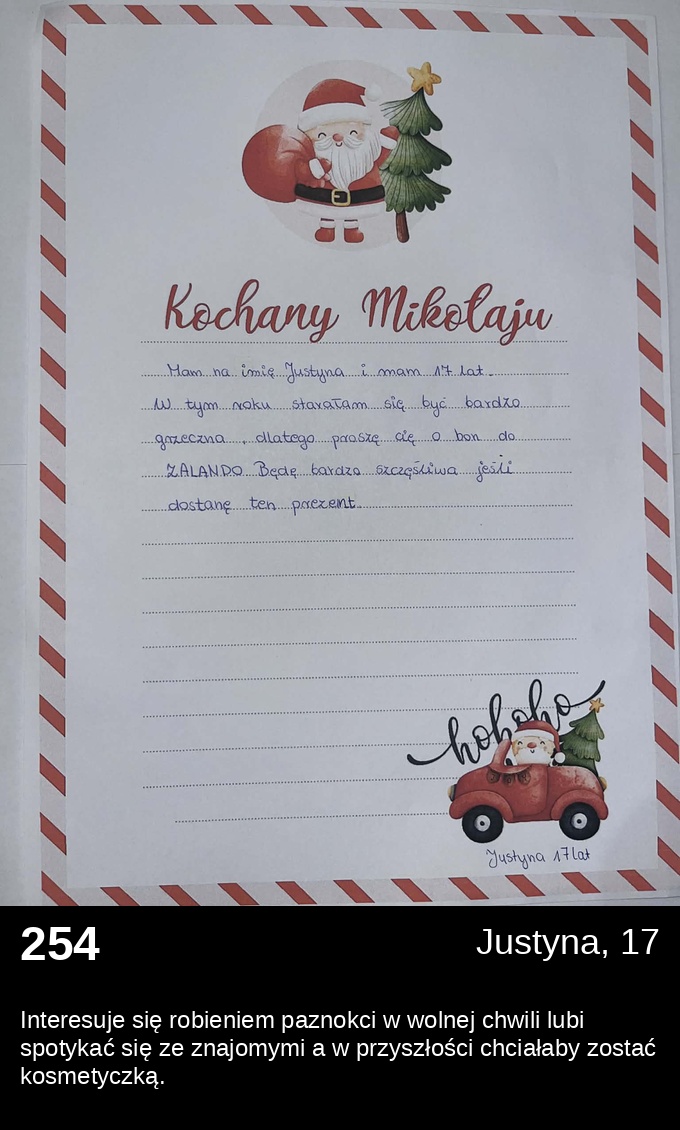 Kochany Mikołaju
Mam na imię Justyna i mam 17 lat.
W tym roku starałam się być bardzo
grzeczna , dlatego proszę cię o bon do
ZALANDO Będę bardzo szczęśliwa jeśli
dostanę ten prezent.
hohoho
Justyna 17 lat
254
Justyna, 17
Interesuje się robieniem paznokci w wolnej chwili lubi
spotykać się ze znajomymi a w przyszłości chciałaby zostać
kosmetyczką.